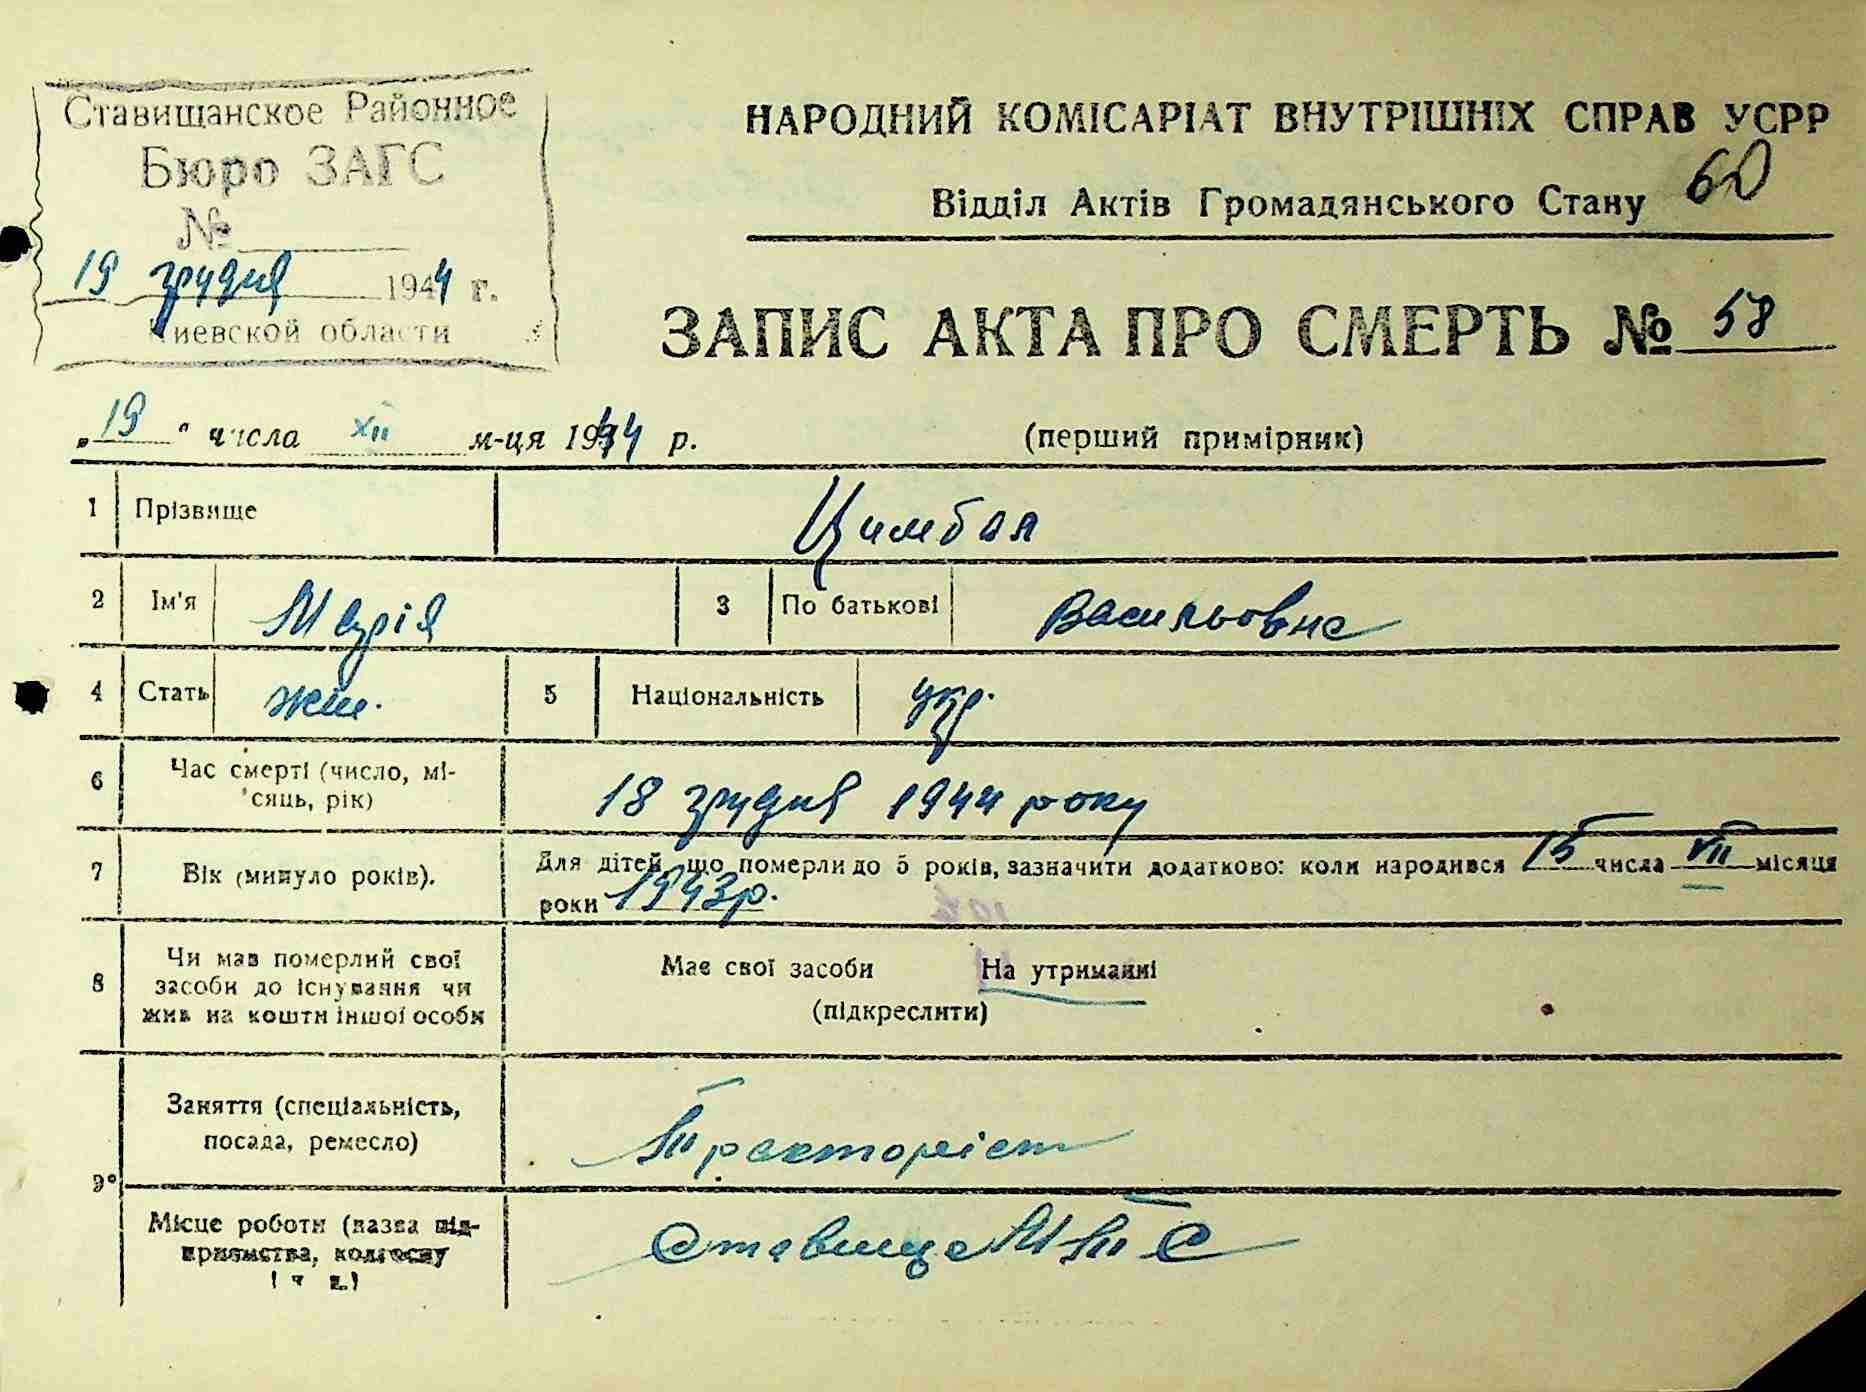 Ставищанское Районное
Бюро ЗАГС
№
19 грудня 1944 г.
Киевской области
НАРОДНИЙ КОМІСАРІАТ ВНУТРІШНІХ СПРАВ УСРР
60
Відділ Актів Громадянського Стану
ЗАПИС АКТА ПРО СМЕРТЬ № 58
„19" числа XII м-ця 1944 р.
(перший примірник)
1 Прізвище Цимбал
2 Ім'я Марія 3 По батькові Васильовна
4 Стать жін. 5 Національність укр.
6 Час смерті (число, мі-
сяць, рік)
18 грудня 1944 року
7 Вік (минуло років).
Для дітей, що померли до 5 років, зазначити додатково: коли народився 15 числа VII місяця
роки 1943р.
8 Чи мав померлий свої
засоби до існування чи
жив на кошти іншої особи
Має свої засоби На утриманні
(підкреслити)
9
Заняття (спеціальність,
посада, ремесло)
Тракторіст
Місце роботи (назва під-
приємства, колгоспу
і т. д.)
Ставище МТС